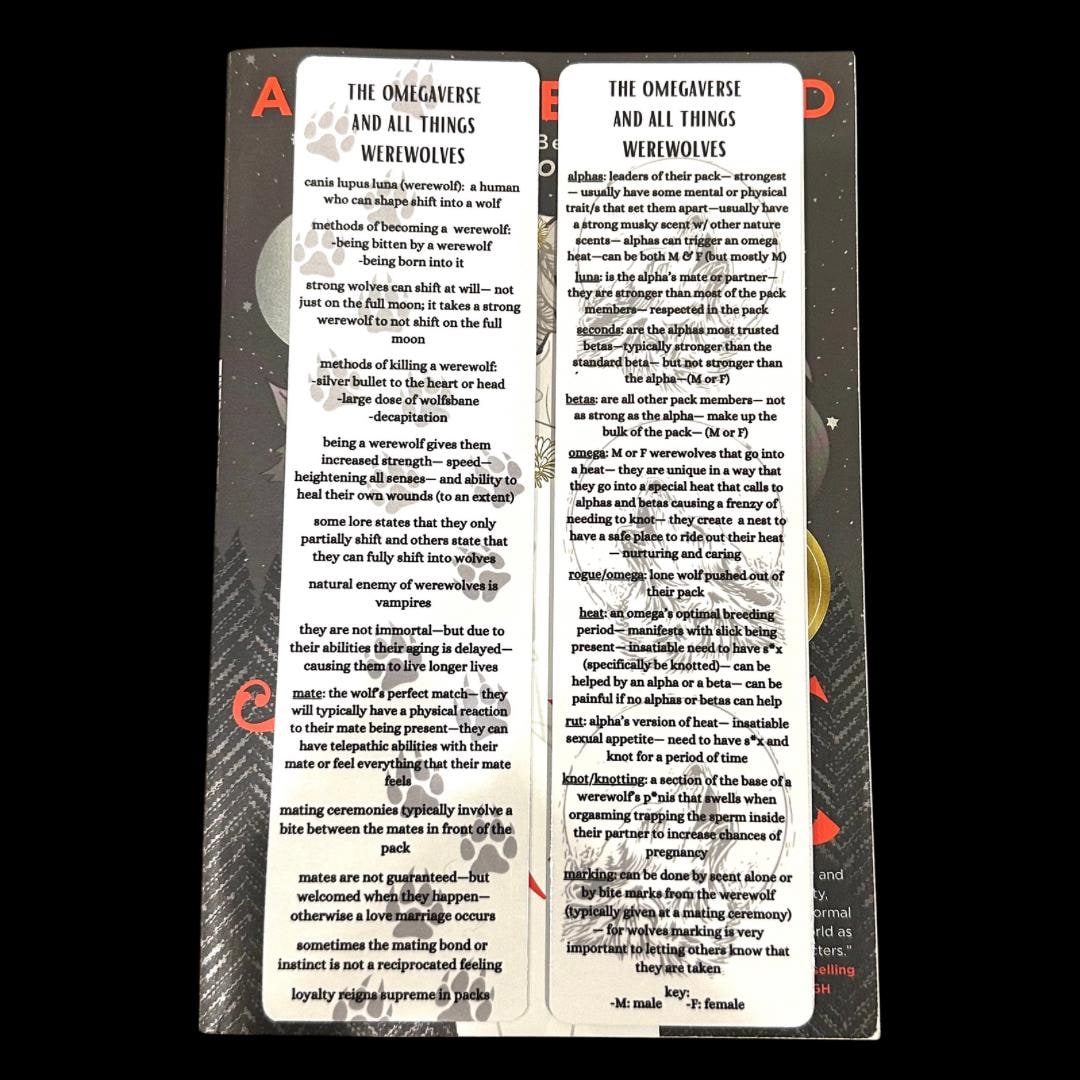 THE OMEGAVERSE
AND ALL THINGS
WEREWOLVES
canis lupus luna (werewolf): a human
who can shape shift into a wolf
methods of becoming a werewolf:
-being bitten by a werewolf
-being born into it
strong wolves can shift at will— not
just on the full moon; it takes a strong
werewolf to not shift on the full
moon
methods of killing a werewolf:
-silver bullet to the heart or head
-large dose of wolfsbane
-decapitation
being a werewolf gives them
increased strength— speed—
heightening all senses— and ability to
heal their own wounds (to an extent)
some lore states that they only
partially shift and others state that
they can fully shift into wolves
natural enemy of werewolves is
vampires
they are not immortal—but due to
their abilities their aging is delayed—
causing them to live longer lives
mate: the wolf's perfect match— they
will typically have a physical reaction
to their mate being present—they can
have telepathic abilities with their
mate or feel everything that their mate
feels
mating ceremonies typically involve a
bite between the mates in front of the
pack
mates are not guaranteed—but
welcomed when they happen—
otherwise a love marriage occurs
sometimes the mating bond or
instinct is not a reciprocated feeling
loyalty reigns supreme in packs
THE OMEGAVERSE
AND ALL THINGS
WEREWOLVES
alphas: leaders of their pack— strongest
— usually have some mental or physical
trait/s that set them apart—usually have
a strong musky scent w/ other nature
scents— alphas can trigger an omega
heat—can be both M & F (but mostly M)
luna: is the alpha's mate or partner—
they are stronger than most of the pack
members— respected in the pack
seconds: are the alphas most trusted
betas—typically stronger than the
standard beta— but not stronger than
the alpha—(M or F)
betas: are all other pack members— not
as strong as the alpha— make up the
bulk of the pack— (M or F)
omega: M or F werewolves that go into
a heat— they are unique in a way that
they go into a special heat that calls to
alphas and betas causing a frenzy of
needing to knot— they create a nest to
have a safe place to ride out their heat
— nurturing and caring
rogue/omega: lone wolf pushed out of
their pack
heat: an omega's optimal breeding
period— manifests with slick being
present— insatiable need to have s*x
(specifically be knotted)— can be
helped by an alpha or a beta— can be
painful if no alphas or betas can help
rut: alpha's version of heat— insatiable
sexual appetite— need to have s*x and
knot for a period of time
knot/knotting: a section of the base of a
werewolf's p*nis that swells when
orgasming trapping the sperm inside
their partner to increase chances of
pregnancy
marking: can be done by scent alone or
by bite marks from the werewolf
(typically given at a mating ceremony)
— for wolves marking is very
important to letting others know that
they are taken
key:
-M: male -F: female
and